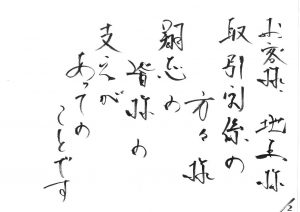 お客様、地主様
取引関係の
方々様
志の
皆様の
支えが
あっての
ことです